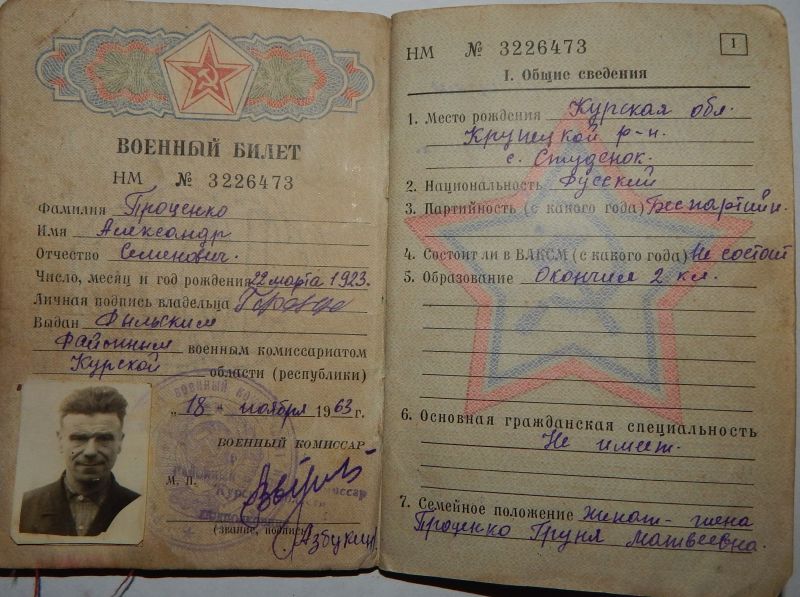 ВОЕННЫЙ БИЛЕТ
НМ № 3226473
Фамилия Проценко
Имя Александр
Отчество Семенович.
Число, месяц и год рождения 22 марта 1923.
Личная подпись владельца
Выдан Рыльским
Районным военным комиссариатом
Курской области (республики)
„18" ноября 1963 г.
ВОЕННЫЙ КОМИССАР
М. П.
(звание, подпись)
НМ № 3226473
1
I. Общие сведения
1. Место рождения Курская обл.
Крупецкой р-н.
с. Студенок.
2. Национальность Русский
3. Партийность (с какого года) Беспартийн.
4. Состоит ли в ВЛКСМ (с какого года) Не состоит
5. Образование Окончил 2 кл.
6. Основная гражданская специальность
Не имеет.
7. Семейное положение Женат - жена
Проценко Груня Матвеевна.